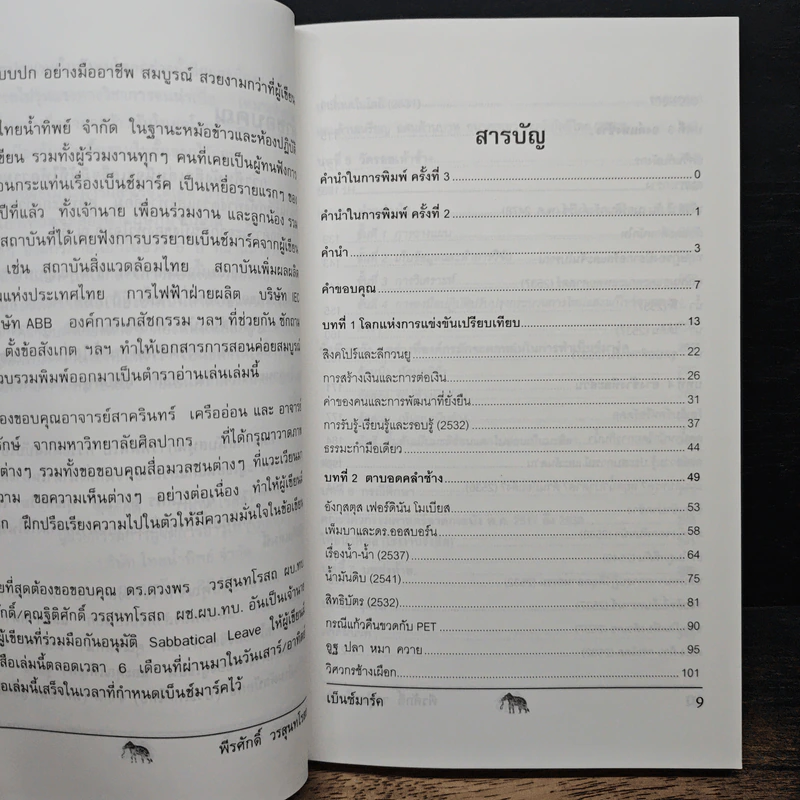 บบปก อย่างมืออาชีพ สมบูรณ์ สวยงามกว่าที่ผู้เขียน
ไทยน้ำทิพย์ จำกัด ในฐานะหม้อข้าวและห้องปฏิบัติ
ขียน รวมทั้งผู้ร่วมงานทุกๆ คนที่เคยเป็นผู้ทนฟังการ
อนกระแท่นเรื่องเบ็นช์มาร์ค เป็นเหยื่อรายแรกๆ ของ
ปีที่แล้ว ทั้งเจ้านาย เพื่อนร่วมงาน และลูกน้อง รวม
สถาบันที่ได้เคยฟังการบรรยายเบ็นช์มาร์คจากผู้เขียน
เช่น สถาบันสิ่งแวดล้อมไทย สถาบันเพิ่มผลผลิต
มแห่งประเทศไทย การไฟฟ้าฝ่ายผลิต บริษัท IEC
ษัท ABB องค์การเภสัชกรรม ฯลฯ ที่ช่วยกัน ซักถาม
ตั้งข้อสังเกต ฯลฯ ทำให้เอกสารการสอนค่อยสมบูรณ์
วบรวมพิมพ์ออกมาเป็นตำราอ่านเล่นเล่มนี้
องขอบคุณอาจารย์สาครินทร์ เครืออ่อน และ อาจารย์
รักษ์ จากมหาวิทยาลัยศิลปากร ที่ได้กรุณาวาดภาพ
ต่างๆ รวมทั้งขอขอบคุณสื่อมวลชนต่างๆ ที่แวะเวียนมา
วาม ขอความเห็นต่างๆ อย่างต่อเนื่อง ทำให้ผู้เขียนมี
ก ฝึกปรือเรียงความไปในตัวให้มีความมั่นใจในข้อเขียน
ยที่สุดต้องขอขอบคุณ ดร.ดวงพร วรสุนทโรสถ ผบ.ทบ.
ักดิ์/คุณฐิติศักดิ์ วรสุนทโรสถ ผช.ผบ.ทบ. อันเป็นเจ้านาย
ผู้เขียนที่ร่วมมือกันอนุมัติ Sabbatical Leave ให้ผู้เขียนมี
สือเล่มนี้ตลอดเวลา 6 เดือนที่ผ่านมาในวันเสาร์/อาทิตย์
อเล่มนี้เสร็จในเวลาที่กำหนดเบ็นช์มาร์คไว้
พีรศักดิ์ วรสุนทโรสถ
สารบัญ
คำนำในการพิมพ์ ครั้งที่ 3 0
คำนำในการพิมพ์ ครั้งที่ 2 1
คำนำ 3
คำขอบคุณ 7
บทที่ 1 โลกแห่งการแข่งขันเปรียบเทียบ 13
สิงคโปร์และลีกวนยู 22
การสร้างเงินและการต่อเงิน 26
ค่าของคนและการพัฒนาที่ยั่งยืน 31
การรับรู้-เรียนรู้และรอบรู้ (2532) 37
ธรรมะกำมือเดียว 44
บทที่ 2 ตาบอดคลำช้าง 49
อังกุสตุส เฟอร์ดินัน โมเบียส 53
เพ็มบาและดร.ออสบอร์น 58
เรื่องน้ำ-น้ำ (2537) 64
น้ำมันดิบ (2541) 75
สิทธิบัตร (2532) 81
กรณีแก้วคืนขวดกับ PET 90
อูฐ ปลา หมา ควาย 95
วิศวกรช้างเผือก 101
เบ็นช์มาร์ค 9